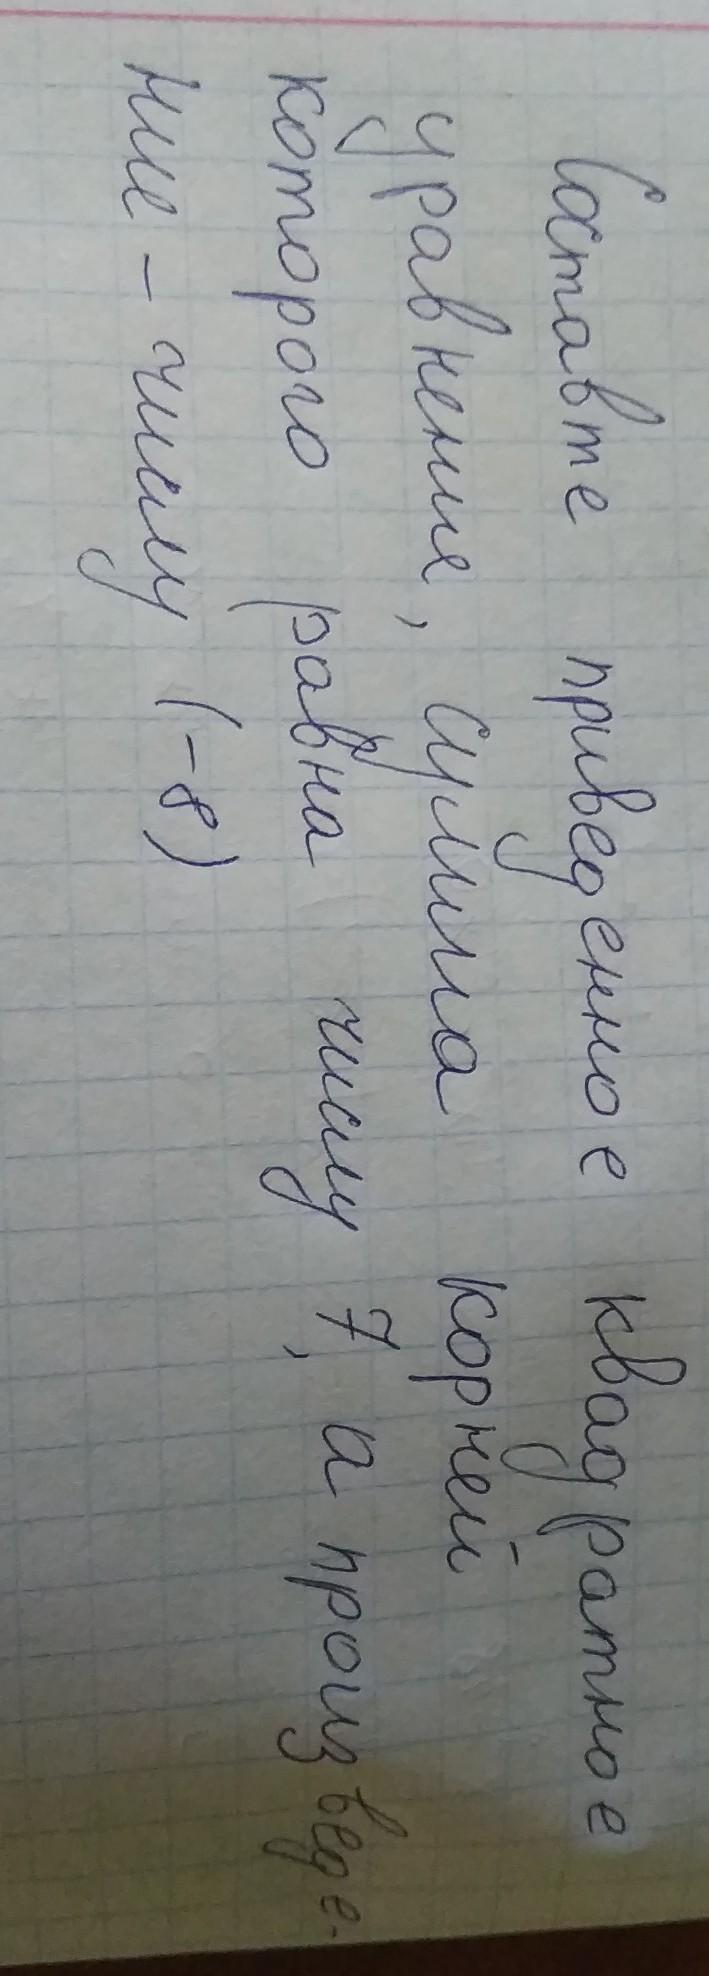 Составте приведенное квадратное
уравнение, сумма корней
которого равна числу 7, а произведе-
ние - числу (-8)